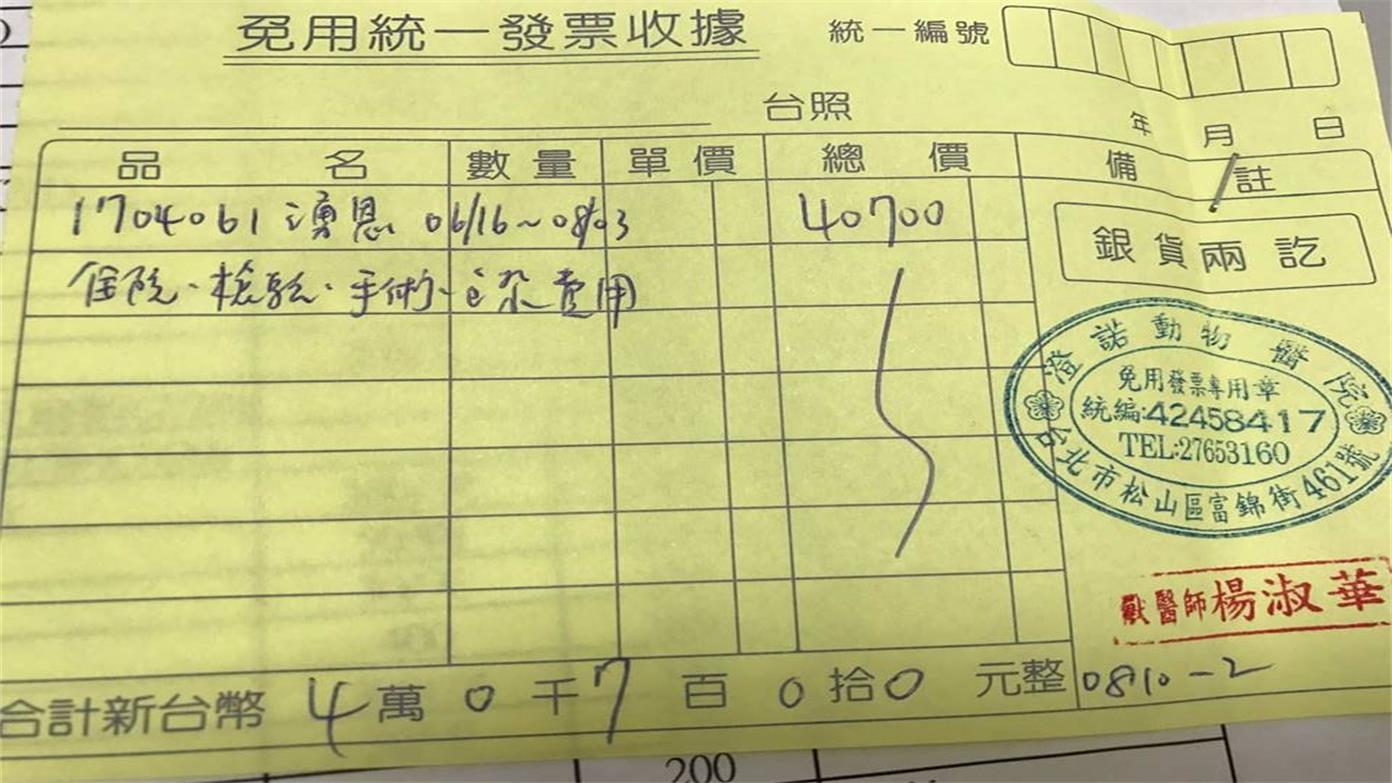 免用統一發票收據
統一編號
台照
年 月 日
品 名 數量 單價 總 價 備 註
1704061 湧恩 06/16~08/03 40700
住院、檢驗、手術、已染費用
銀貨兩訖
澄諾動物醫院
免用發票專用章
統編:42458417
TEL:27653160
台北市松山區富錦街461號
獸醫師楊淑華
合計新台幣 4 萬 0 千 7 百 0 拾 0 元整 0810-2
200